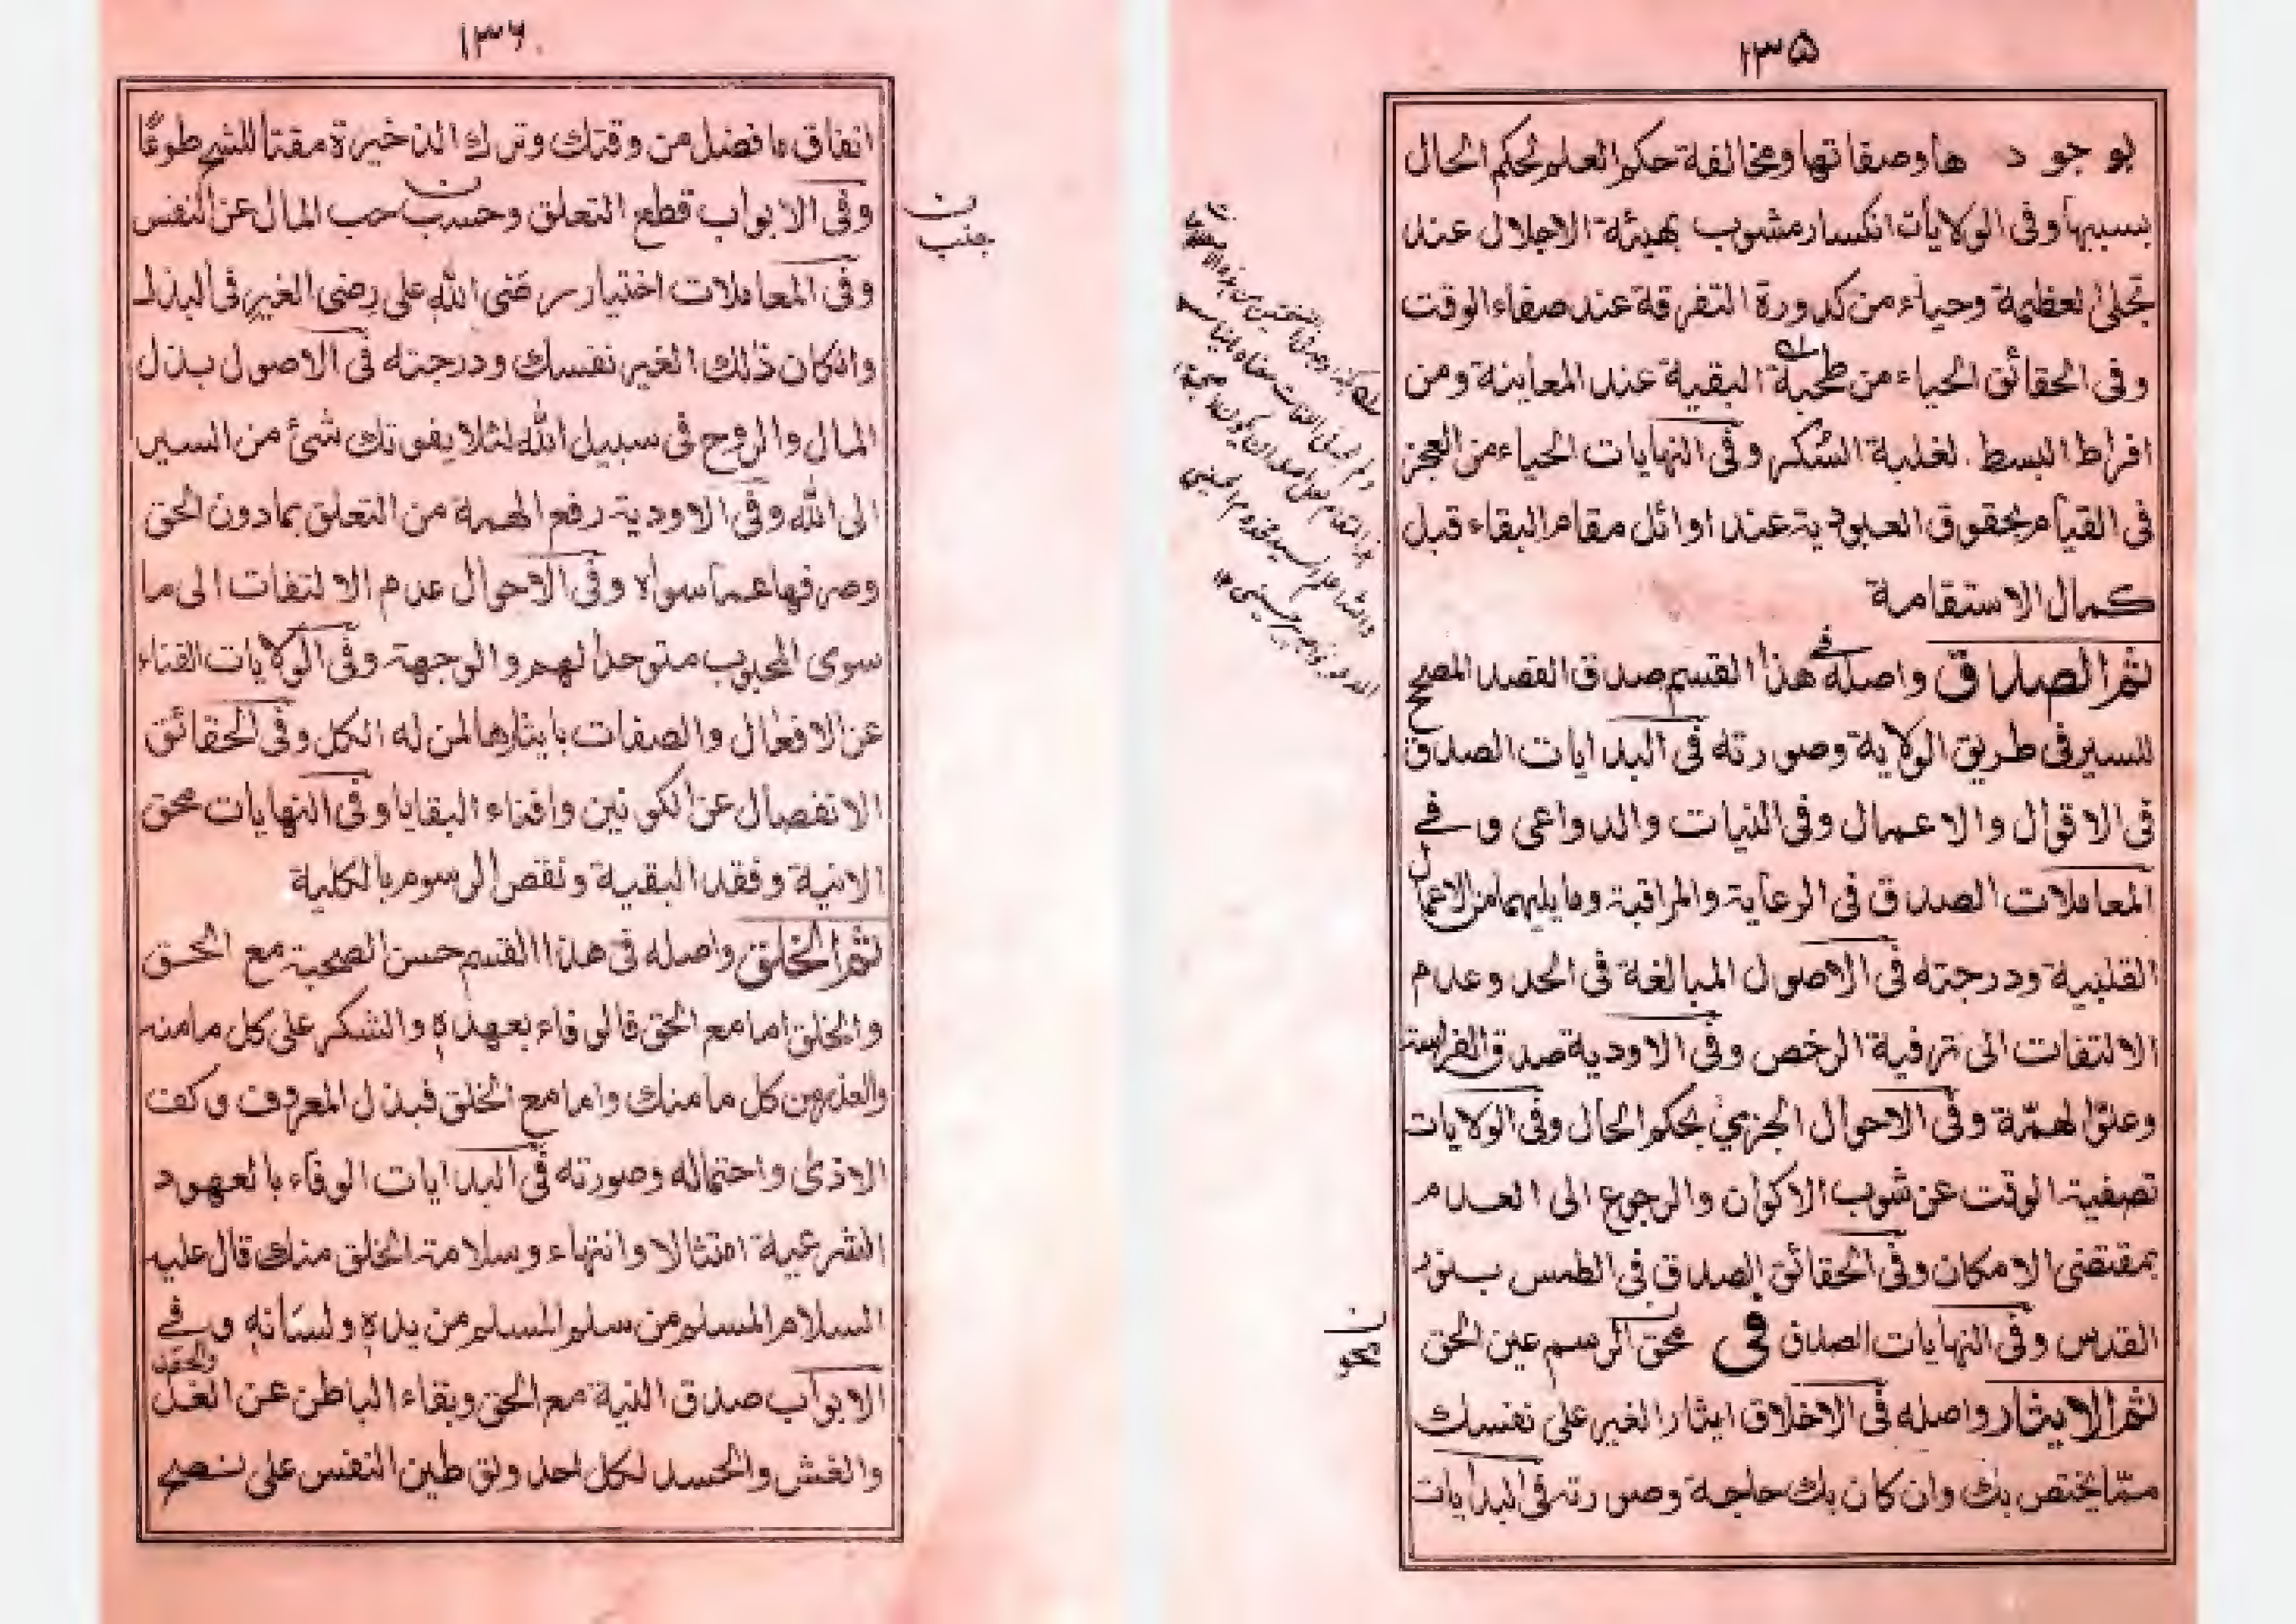 ١٣٥
بوجود ها وصفاتها ومخالفة حكم العلم لحكم الحال
بسببها وفى الولايات انكسار مشوب بهيئة الاجلال عند
تجلى لعظمة وحياء من كدورة التفرقة عند صفاء الوقت
وفى الحقائق الحياء من طحبة البقية عند المعاينة ومن
افراط البسط لغلبة السُكر وفى النهايات الحياء من العجز
فى القيام بحقوق العبودية عند اوائل مقام البقاء قبل
كمال الاستقامة
ثم الصدق واصله فى هذا القسم صدق القصد المصحح
للسير فى طريق الولاية وصورته فى البدايات الصدق
فى الاقوال والاعمال وفى النيات والدواعى وفى
المعاملات الصدق فى الرعاية والمراقبة وما يليهما من الاعمال
القلبية ودرجته فى الاصول المبالغة فى الحد وعدم
الالتفات الى ترفية الرخص وفى الاودية صدق الفراسة
وعلو لهمّة وفى الاحوال الجزمى بحكم الحال وفى الولايات
تصفية الوقت عن شوب الاكوان والرجوع الى العدم
بمقتضى الامكان وفى الحقائق الصدق فى الطمس بنور
القدس وفى النهايات الصدق فى محق الرسم عين الحق
ثم الايثار واصله فى الاخلاق ايثار الغير على نفسك
ممّا يختص بك وان كان بك حاجة وصورته فى البدايات
١٣٦
انفاق ما فضل من وقتك وترك الذخيرة مقتا للشح طوعًا
وفى الابواب قطع التعلق وحسب حب المال عن النفس
ن
بجنب
وفى المعاملات اختيار رضى الله على رضى الغير فى البذل
وانكان ذلك الغير نفسك ودرجته فى الاصول بذل
المال والروح فى سبيل الله لئلا يفوتك شئ من السير
الى الله وفى الاودية رفع الهمة من التعلق بمادون الحق
وصرفها عما سواه وفى الاحوال عدم الالتفات الى ما
سوى المحبوب متوحدا لهم والوجهة وفى الولايات الفناء
عن الافعال والصفات بايثارها لمن له الكل وفى الحقائق
الانفصال عن الكونين وافناء البقايا وفى النهايات محق
الانية وفقد البقية ونقص الرسوم بالكلية
ثم الخلق واصله فى هذا القسم حسن الصحبة مع الحق
والخلق اما مع الحق فالوفاء بعهده والشكر على كل ما منه
والعذر من كل ما منك واما مع الخلق فبذل المعروف وكف
الاذى واحتماله وصورته فى البدايات الوفاء بالعهود
الشرعية امتثالا وانتهاء وسلامة الخلق منك قال عليه
السلام المسلم من سلم المسلم من يده ولسانه وفى
الابواب صدق النية مع الحق وبقاء الباطن عن الغل والحقد
والغش والحسد لكل احد وتوطين النفس على نصح